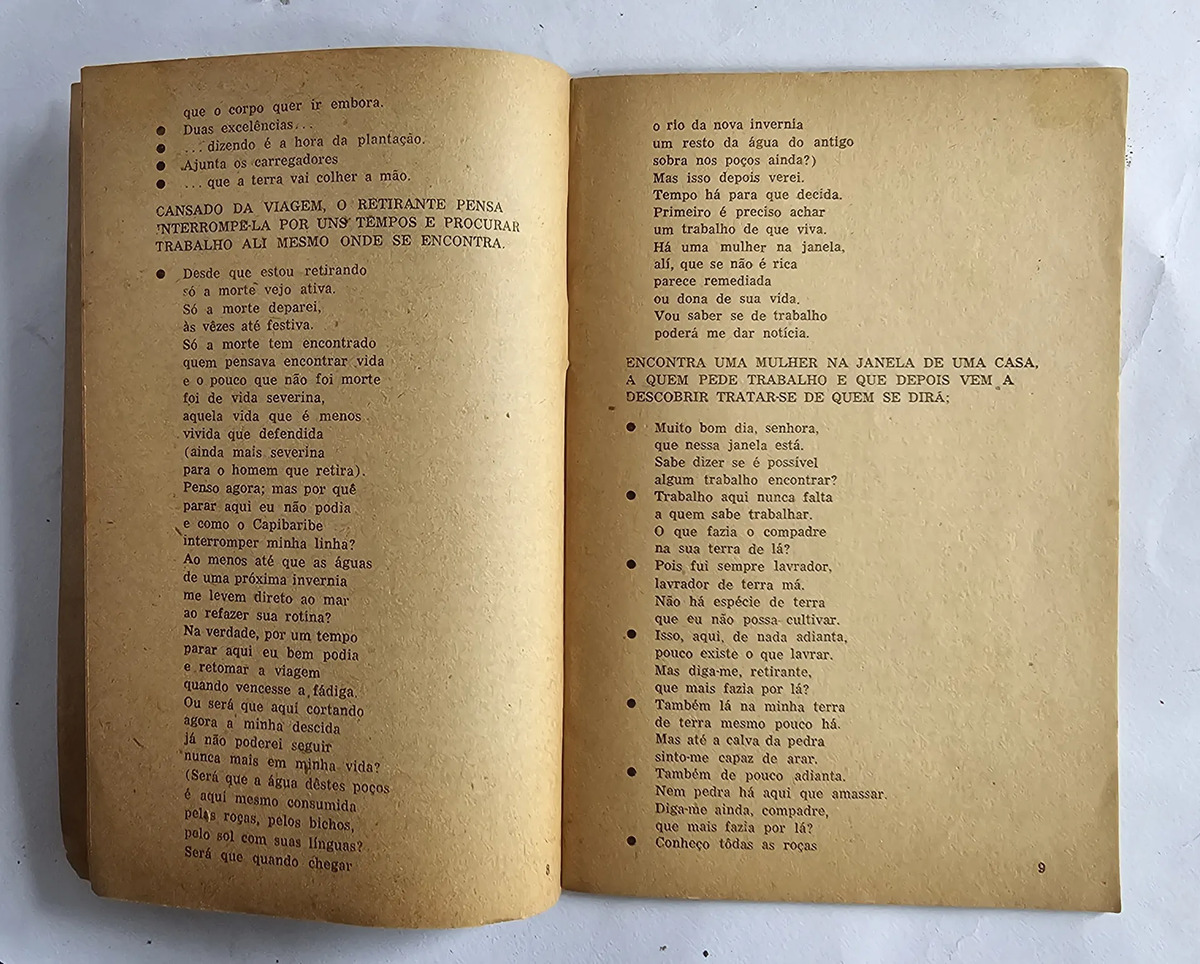 que o corpo quer ir embora.
● Duas excelências...
● ... dizendo é a hora da plantação.
● Ajunta os carregadores
● ... que a terra vai colher a mão.
CANSADO DA VIAGEM, O RETIRANTE PENSA
INTERROMPE-LA POR UNS TÊMPOS E PROCURAR
TRABALHO ALI MESMO ONDE SE ENCONTRA.
● Desde que estou retirando
só a morte vejo ativa.
Só a morte deparei,
às vêzes até festiva.
Só a morte tem encontrado
quem pensava encontrar vida
e o pouco que não foi morte
foi de vida severina,
aquela vida que é menos
vivida que defendida
(ainda mais severina
para o homem que retira).
Penso agora; mas por quê
parar aqui eu não podia
e como o Capibaribe
interromper minha linha?
Ao menos até que as águas
de uma próxima invernia
me levem direto ao mar
ao refazer sua rotina?
Na verdade, por um tempo
parar aqui eu bem podia
e retomar a viagem
quando vencesse a fádiga.
Ou será que aqui cortando
agora a minha descida
já não poderei seguir
nunca mais em minha vida?
(Será que a água dêstes poços
é aqui mesmo consumida
pelas roças, pelos bichos,
pelo sol com suas línguas?
Será que quando chegar
8
o rio da nova invernia
um resto da água do antigo
sobra nos poços ainda?)
Mas isso depois verei.
Tempo há para que decida.
Primeiro é preciso achar
um trabalho de que viva.
Há uma mulher na janela,
alí, que se não é rica
parece remediada
ou dona de sua vida.
Vou saber se de trabalho
poderá me dar notícia.
ENCONTRA UMA MULHER NA JANELA DE UMA CASA,
A QUEM PEDE TRABALHO E QUE DEPOIS VEM A
DESCOBRIR TRATAR-SE DE QUEM SE DIRÁ;
● Muito bom dia, senhora,
que nessa janela está.
Sabe dizer se é possível
algum trabalho encontrar?
● Trabalho aqui nunca falta
a quem sabe trabalhar.
O que fazia o compadre
na sua terra de lá?
● Pois fui sempre lavrador,
lavrador de terra má.
Não há espécie de terra
que eu não possa cultivar.
● Isso, aqui, de nada adianta,
pouco existe o que lavrar.
Mas diga-me, retirante,
que mais fazia por lá?
● Também lá na minha terra
de terra mesmo pouco há.
Mas até a calva da pedra
sinto-me capaz de arar.
● Também de pouco adianta.
Nem pedra há aqui que amassar.
Diga-me ainda, compadre,
que mais fazia por lá?
● Conheço tôdas as roças
9